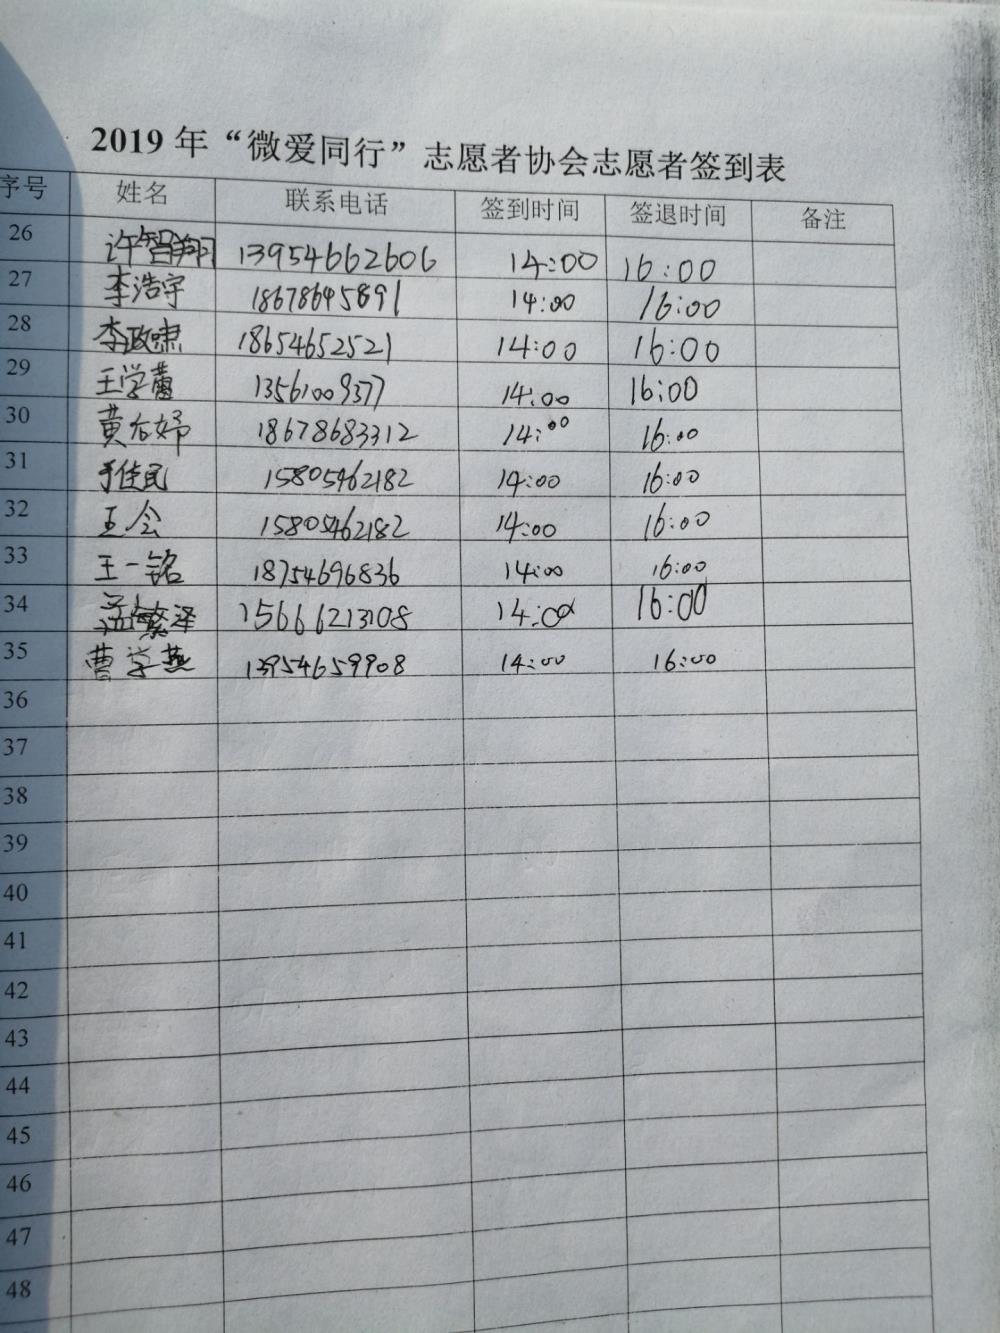 2019年“微爱同行”志愿者协会志愿者签到表
序号 姓名 联系电话 签到时间 签退时间 备注
26 许智翔 13954662606 14:00 16:00
27 李浩宇 18678645891 14:00 16:00
28 李政啸 18654652521 14:00 16:00
29 王学蕾 13561009377 14:00 16:00
30 黄右婷 18678683312 14:00 16:00
31 于佳民 15805462182 14:00 16:00
32 王会 15805462182 14:00 16:00
33 王一铭 18754696836 14:00 16:00
34 孟繁泽 15666213108 14:00 16:00
35 曹学燕 13954659908 14:00 16:00
36
37
38
39
40
41
42
43
44
45
46
47
48